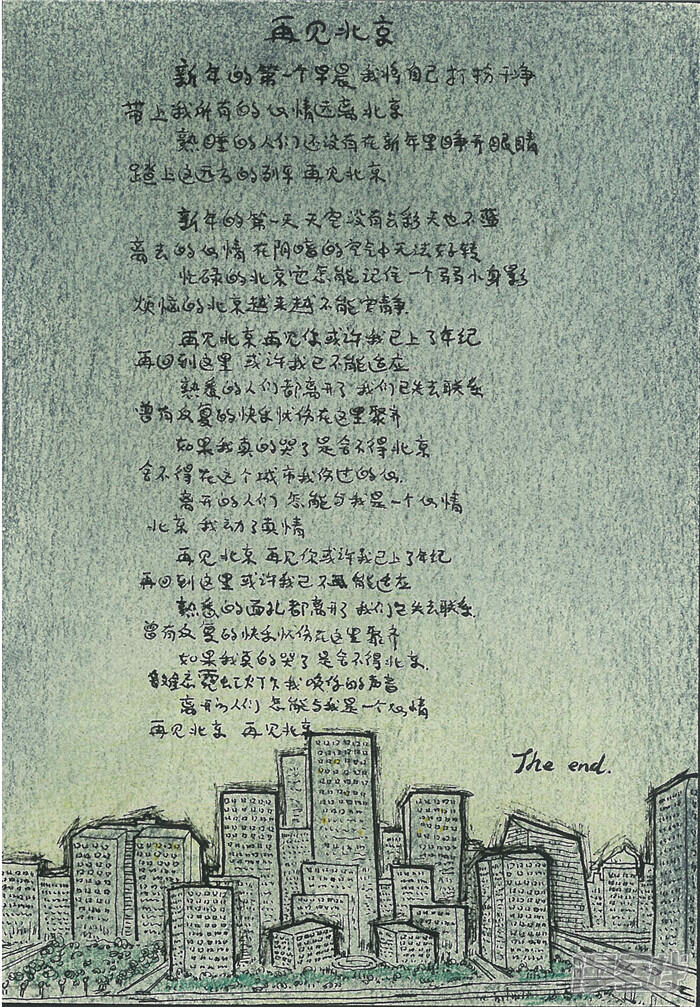 再见北京
新年的第一个早晨 我将自己打扮干净
带上我所有的心情远离北京
熟睡的人们还没有在新年里睁开眼睛
踏上这远方的列车 再见北京
新年的第一天 天空没有云彩天也不蓝
离去的心情在阴暗的空气中无法好转
忙碌的北京它怎能记住一个弱小身影
烦恼的北京越来越不能安静.
再见北京 再见你或许我已上了年纪
再回到这里 或许我已不能适应
熟悉的人们都离开了 我们已失去联系
曾有反复的快乐忧伤在这里聚齐
如果我真的哭了是舍不得北京
舍不得在这个城市我伤过的心.
离开的人们 怎能与我是一个心情
北京 我动了真情
再见北京 再见你或许我已上了年纪
再回到这里或许我已不能适应
熟悉的面孔都离开了 我们已失去联系
曾有反复的快乐忧伤在这里聚齐
如果我真的哭了是舍不得北京.
难忘霓虹灯下我唤你的声音
离开的人们 怎能与我是一个心情
再见北京 再见北京
The end.